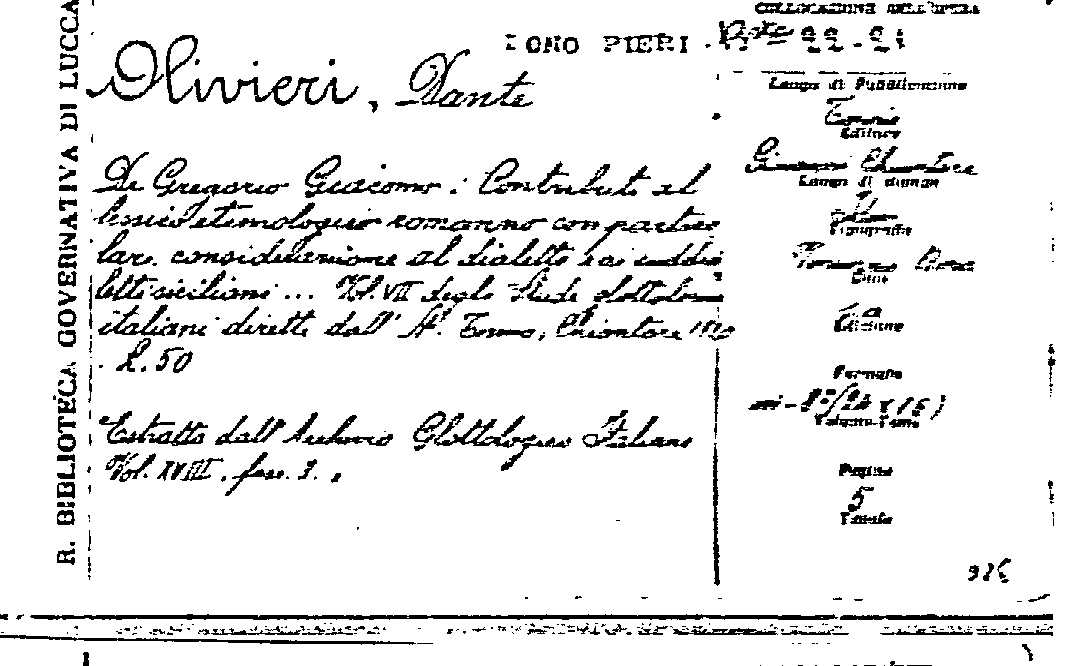 R. BIBLIOTECA GOVERNATIVA DI LUCCA
COLLOCAZIONE DELL'OPERA
DONO PIERI
22-21
Olivieri, Dante
De Gregorio Giacomo: Contributi al
lessico etimologico romanzo con partico
lare considerazione al dialetto e ai suddia
letti siciliani ... Vol. VII degli Studi glottologici
italiani diretti dall' A. Torino, Chiantore
L. 50
Estratto dall' Archivio Glottologico Italiano
Vol. XVIII. fasc. 3.
Luogo di Pubblicazione
Torino
Editore
Giovanni Chiantore
Luogo di stampa
Tipografia
Data
Edizione
Formato
Volume-Tomo
Pagine
5
Tavole